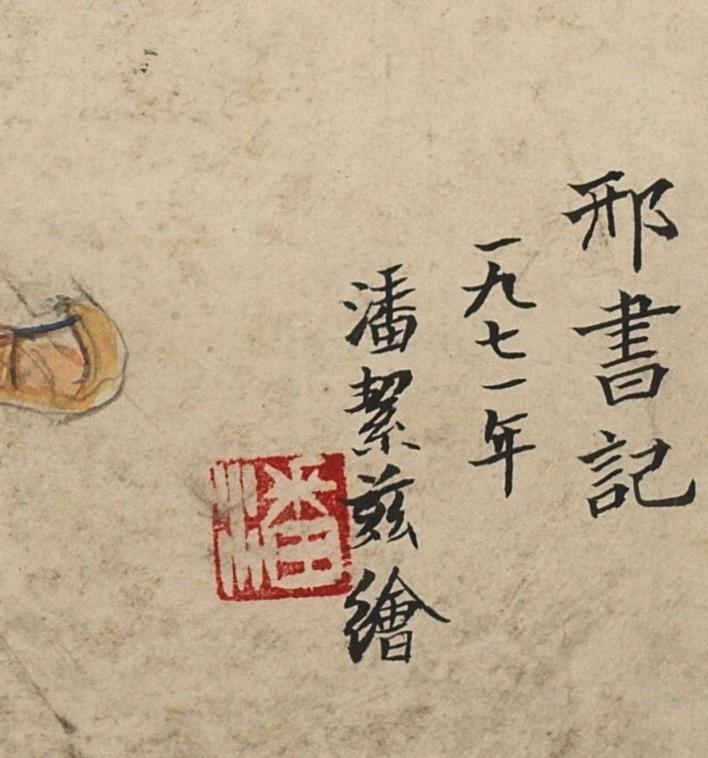 邢書記
一九七一年
潘絜茲繪
潘